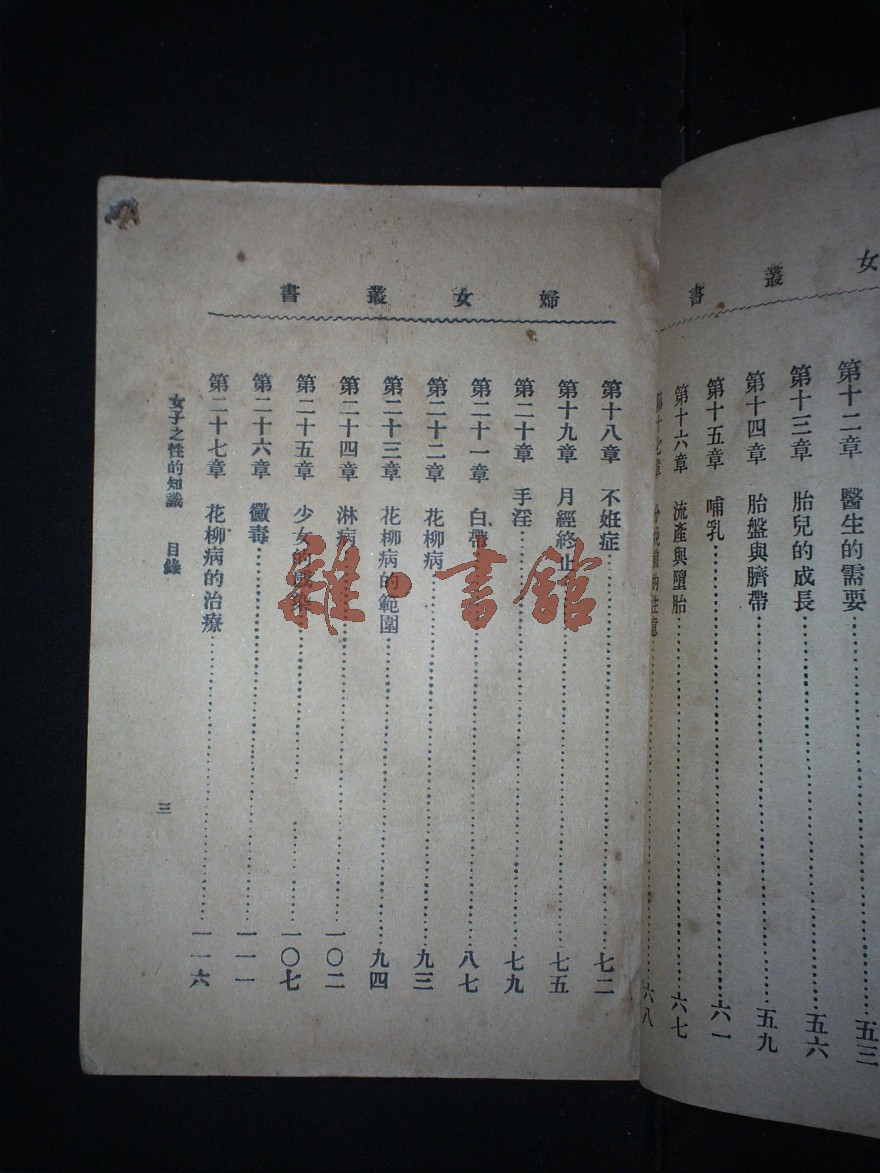 女叢書
第十二章　醫生的需要……五三
第十三章　胎兒的成長……五六
第十四章　胎盤與臍帶……五九
第十五章　哺乳……六一
第十六章　流產與墮胎……六七
第十七章　分娩前的注意……六八
婦女叢書
第十八章　不妊症……七二
第十九章　月經終止……七五
第二十章　手淫……七九
第二十一章　白帶……八七
第二十二章　花柳病……九三
第二十三章　花柳病的範圍……九四
第二十四章　淋病……一〇二
第二十五章　少女的染……一〇七
第二十六章　黴毒……一一一
第二十七章　花柳病的治療……一一六
女子之性的知識　目錄
三
雜·書館